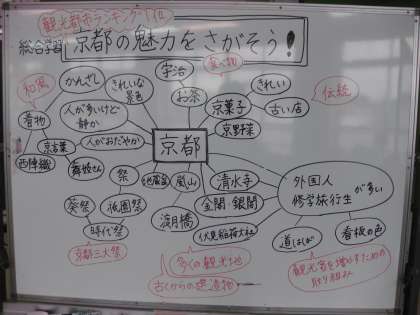 観光都市ランキング1位
総合学習 京都の魅力をさがそう!
宇治
食べ物
和風
かんざし
きれいな
景色
お茶
きれい
京菓子
古い店
伝統
着物
人が多いけど
静か
京野菜
京言葉
人がおだやか
京都
西陣織
舞妓さん
祭
地蔵盆
嵐山
清水寺
外国人
修学旅行生
が多い
葵祭
祇園祭
金閣・銀閣
渡月橋
伏見稲荷大社
時代祭
道はしが
看板の色
京都三大祭
多くの観光地
古くからの建造物
観光客を増やすための
取り組み